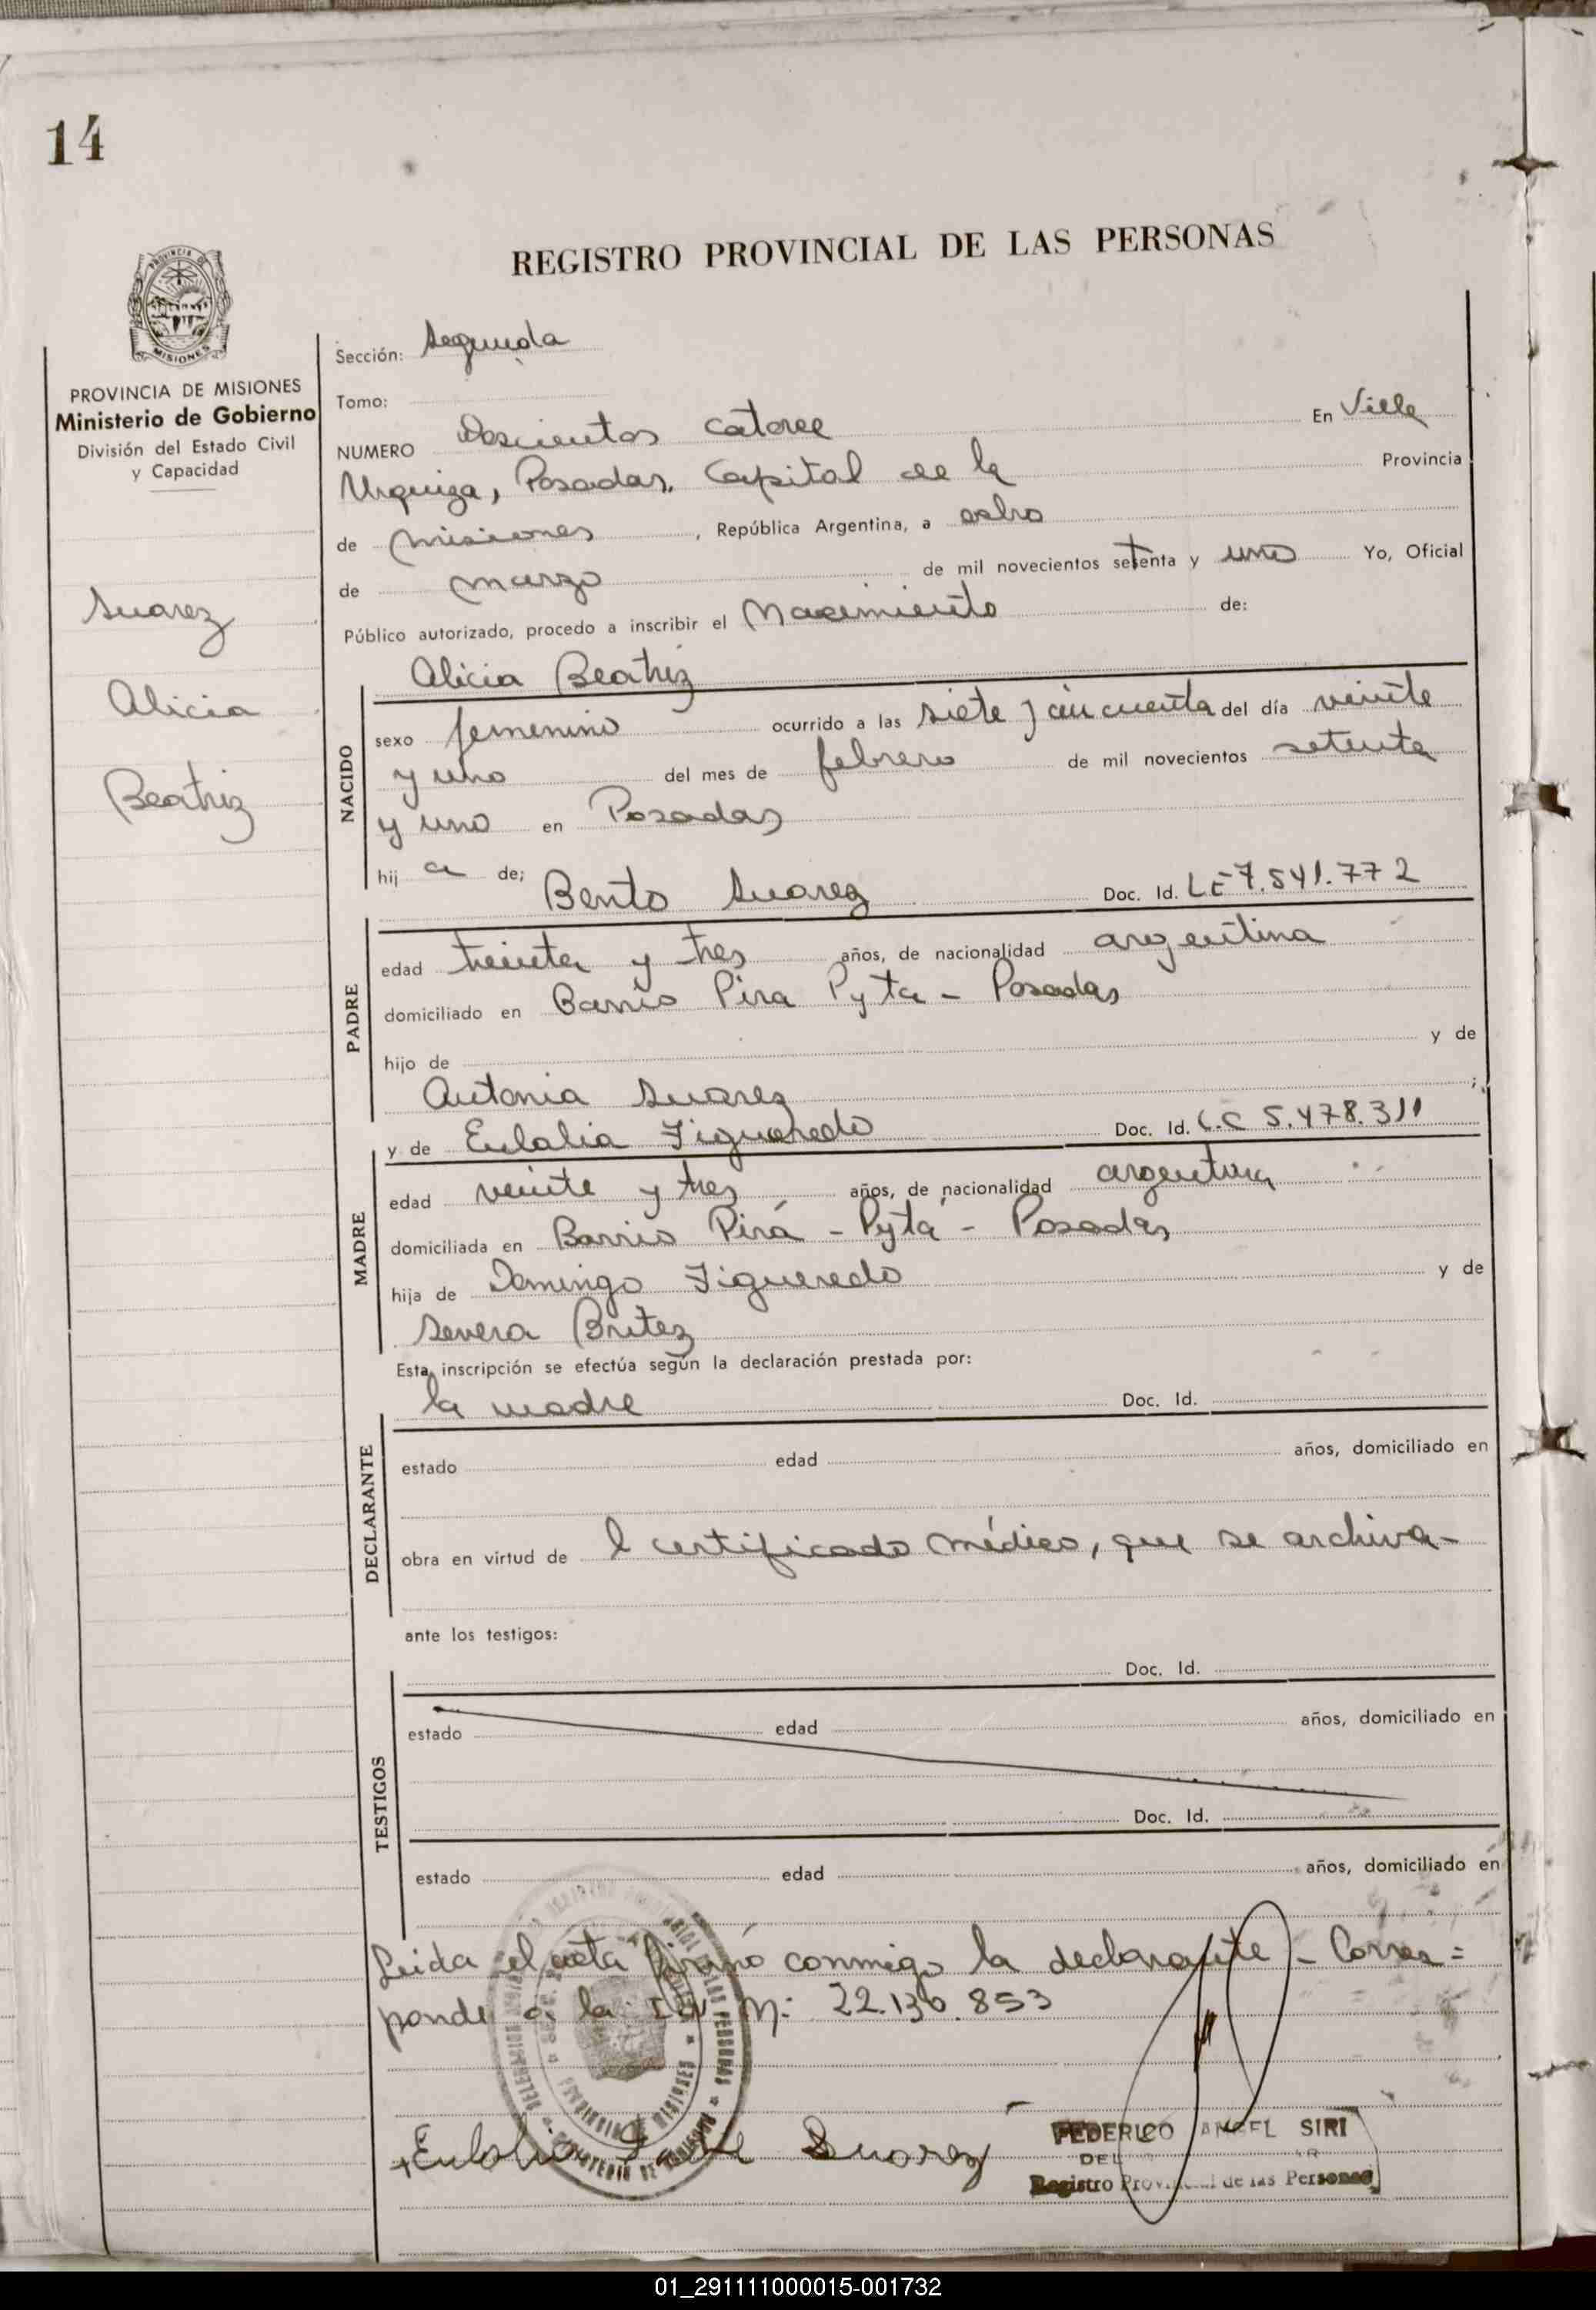 14
REGISTRO PROVINCIAL DE LAS PERSONAS
PROVINCIA DE
MISIONES
PROVINCIA DE MISIONES
Ministerio de Gobierno
División del Estado Civil
y Capacidad
Suarez
Alicia
Beatriz
Sección: Segunda
Tomo:
NUMERO Doscientos catorce En Villa
Urquiza, Posadas, Capital de la Provincia
de Misiones, República Argentina, a ocho
de marzo de mil novecientos setenta y uno Yo, Oficial
Público autorizado, procedo a inscribir el Nacimiento de:
Alicia Beatriz
NACIDO
sexo femenino ocurrido a las siete y cincuenta del día veinte
y uno del mes de febrero de mil novecientos setenta
y uno en Posadas
hij a de; Bento Suarez Doc. Id. LE 7.541.772
PADRE
edad treinta y tres años, de nacionalidad argentina
domiciliado en Barrio Pira Pyta - Posadas
hijo de y de
Antonia Suarez ;
y de Eulalia Figueredo Doc. Id. L.C 5.478.311
MADRE
edad veinte y tres años, de nacionalidad argentina
domiciliada en Barrio Pirá - Pytá - Posadas
hija de Domingo Figueredo y de
Severa Britez
Esta inscripción se efectúa según la declaración prestada por:
la madre Doc. Id.
DECLARANTE
estado edad años, domiciliado en
obra en virtud de l certificado médico, que se archiva-
ante los testigos:
Doc. Id.
TESTIGOS
estado edad años, domiciliado en
Doc. Id.
estado edad años, domiciliado en
Leida el acta firmó conmigo la declarante - Corres=
ponde a la N: 22.130.853
Eulalia de Suarez
FEDERICO ANGEL SIRI
Registro Provincial de las Personas
01_291111000015-001732